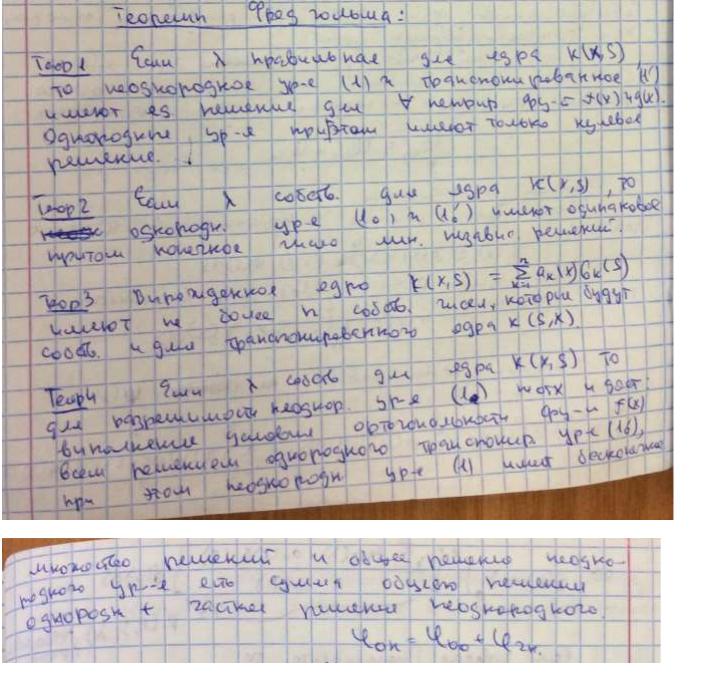 Теоремы Фредгольма:
Теор1 Если λ правильное для ядра K(x,s),
то неоднородное ур-е (1) и транспонированное (1')
имеют ед решение для ∀ непрер фу-й f(x) и g(x).
Однородные ур-я при этом имеют только нулевое
решение.
Теор2 Если λ собств. для ядра K(x,s), то
однородн. ур-е (1₀) и (1₀') имеют одинаковое
притом конечное число лин. независ решений.
Теор3 Вырожденное ядро K(x,s) = ∑ₖ₌₁ⁿ aₖ(x)bₖ(s)
имеют не более n собств. чисел, которые будут
собств. и для транспонированного ядра K(s,x).
Теор4 Если λ собств для ядра K(x,s) то
для разрешимости неоднор. ур-е (1) и дост:
выполнение условия ортогональности фу-и f(x)
всем решением однородного транспонир ур-е (1б),
при этом неоднородн ур-е (1) имеет бесконечное
множество решений и общее решение неодно-
родного ур-е есть сумма общего решения
однородн + частное решения неоднородного.
φон = φоо + φчн.